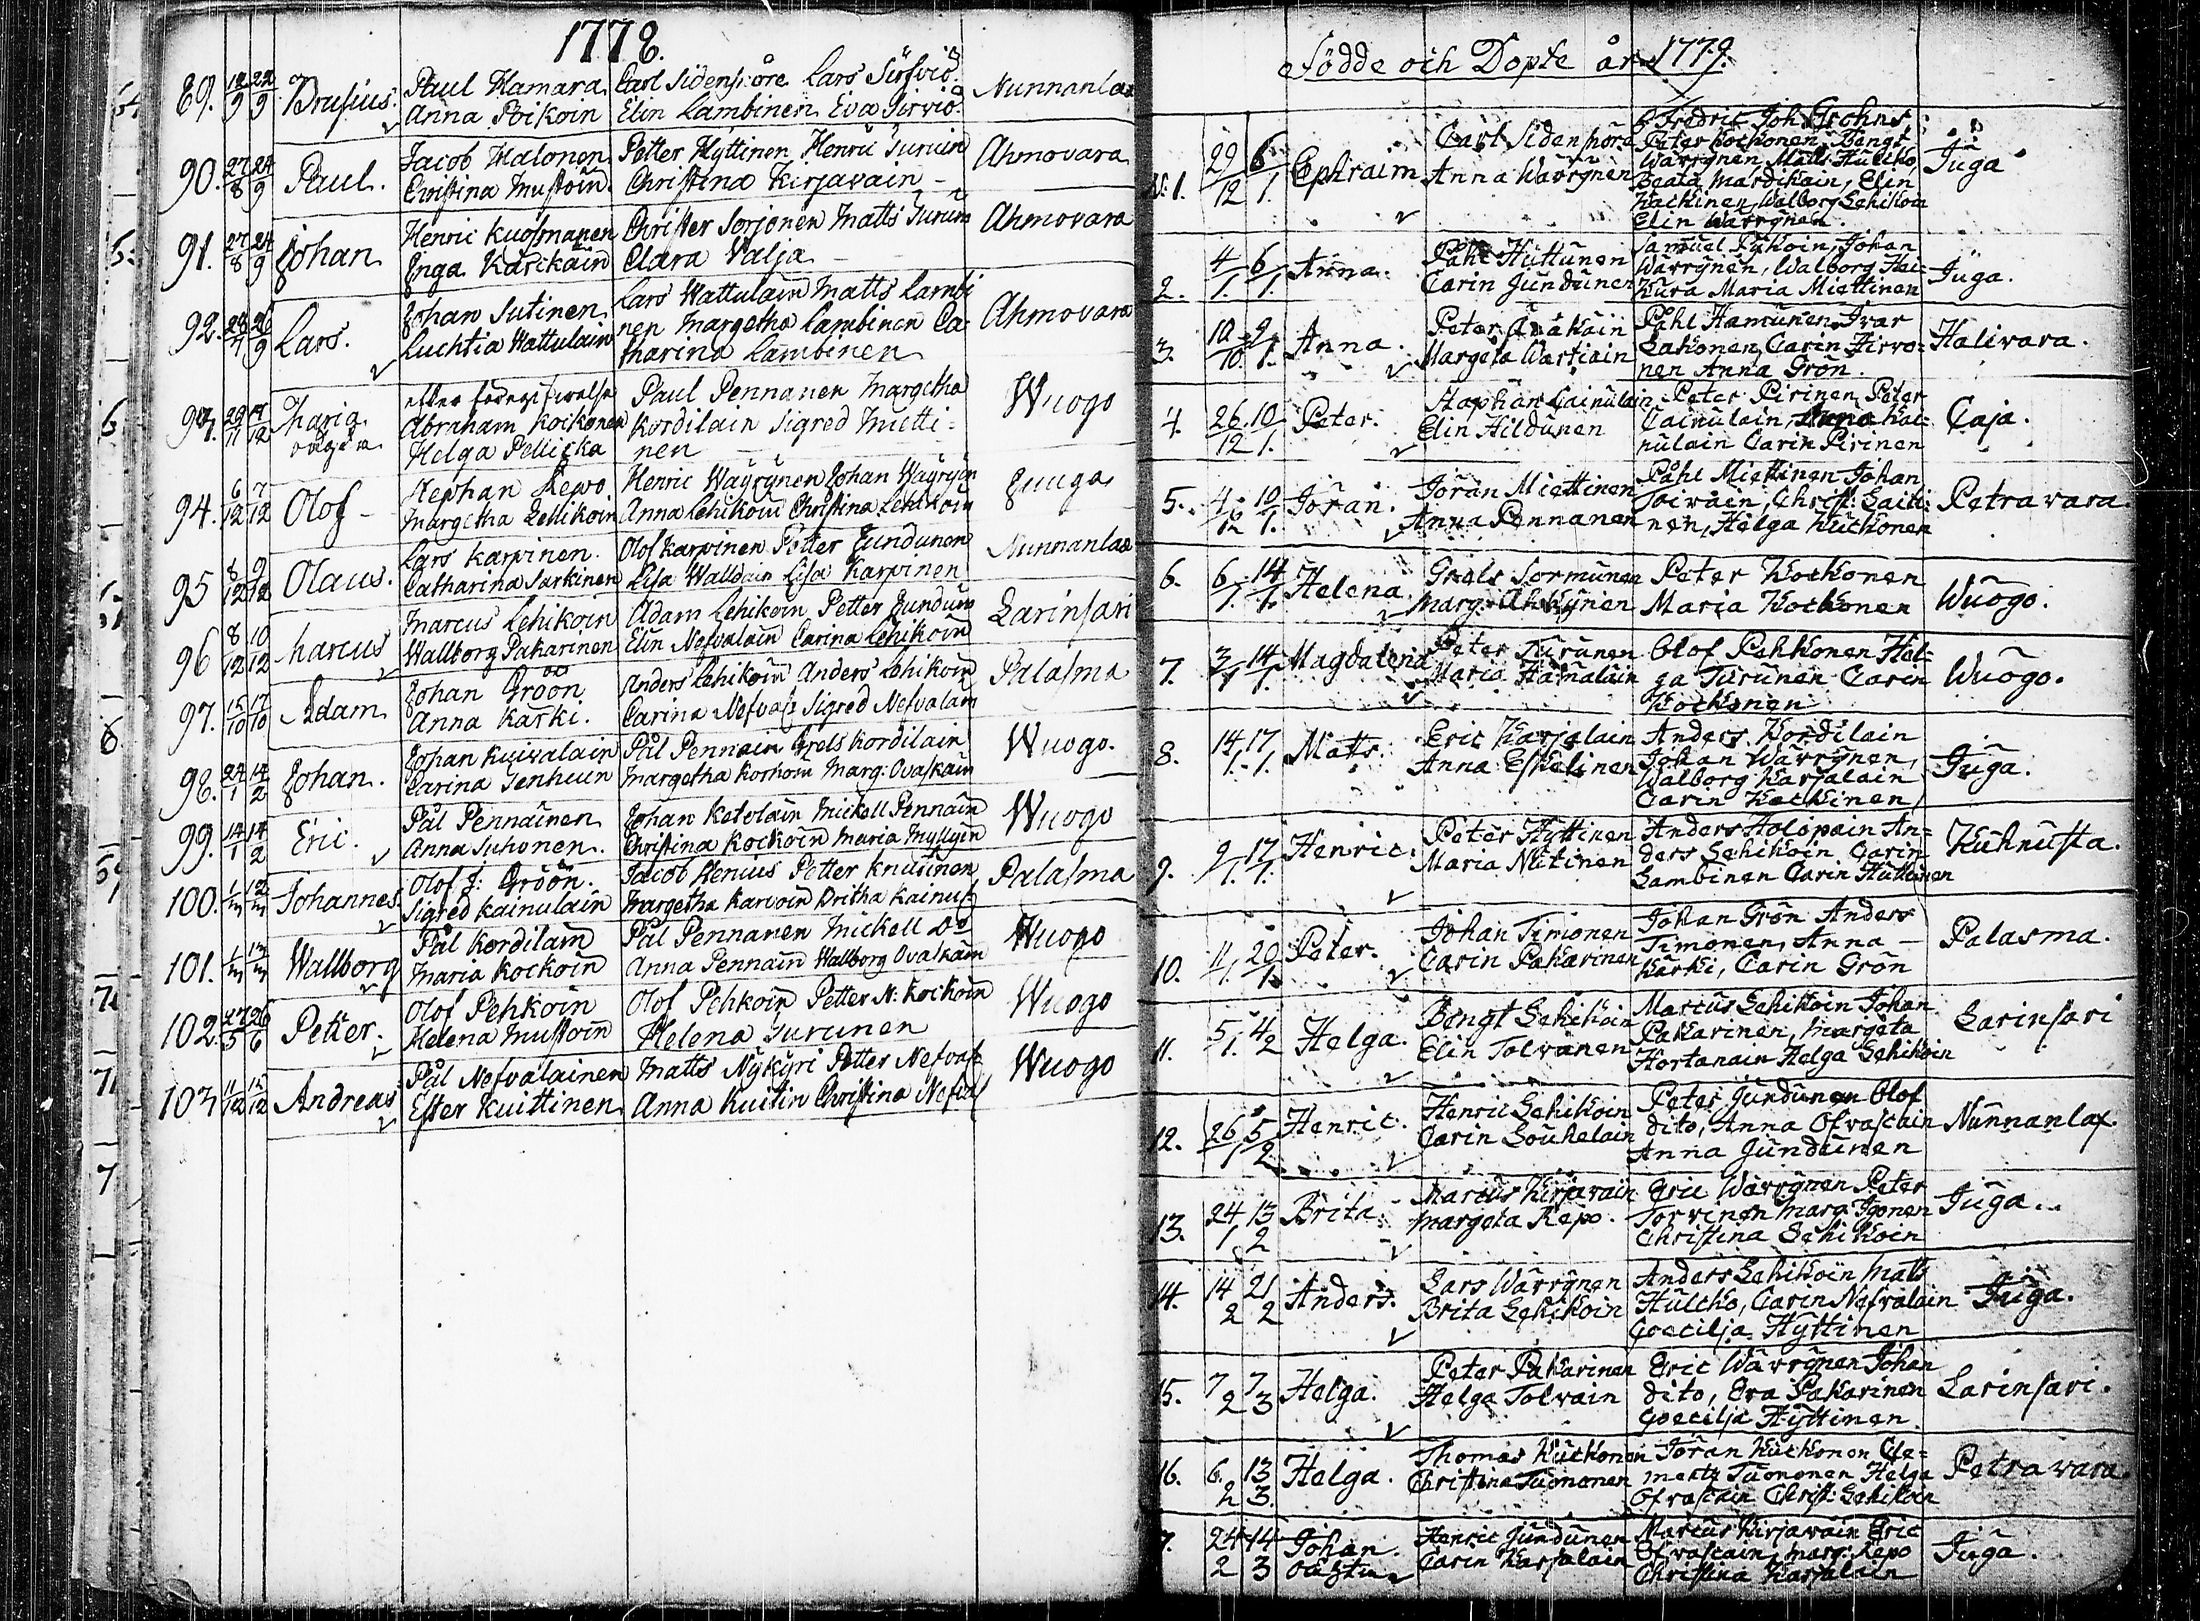 1778.
89. 12/9 22/9 Brusius. Paul Hamara Carl Sidensnöre Lars Sirfviö Nunnanlax
Anna Poikoin Elin Lambinen Eva Sirviö
90. 27/8 24/9 Paul. Jacob Halonen Petter Hyttinen Henric Turuin Ahmovara
Christina Mustoin Christina Kirjavain
91. 27/8 24/9 Johan Henric Kuosmanen Christer Sorjonen Matts Turuin Ahmovara
Inga Karikain Clara Valja
92. Lars. Johan Sutinen Lars Wattulain Matts Lambi Ahmovara
Luchtia Wattulain nen Margetha Lambinen Ca-
tharina Lambinen
93. 29/11 Maria efter föregifwelse Paul Pennanen Margetha Wuogo
oägta Abraham Kockonen Kordilain Sigred Mietti-
Helga Pellicka nen
94. 6/12 7/12 Olof Stephan Repo Henric Wäyrynen Johan Wäyryn Juuga
Margetha Lehikoin Anna Lehikoin Christina Lehikoin
95 8/12 9/12 Olaus. Lars Karvinen Olof Karvinen Petter Jundunen Nunnanlax
Catharina Sarkinen Lisa Walldain Lisa Karvinen
96 8/12 10/12 Marcus Marcus Lehikoin Adam Lehikoin Petter Jundun Larinsari
Wallborg Pakarinen Elin Nefvalain Carina Lehikoin
97. 15/10 17/10 Adam Johan Gröön Anders Lehikoin Anders Lehikoin Palasma
Anna Karki. Carina Nefval Sigred Nefvalain
98. 24/1 14/2 Johan. Johan Kuivalain Pål Pennain Grels Kordilain Wuogo.
Carina Tenhuin Margetha Korkoin Marg: Ovaskain
99. 14/1 14/2 Eric. Pål Pennainen Johan Ketolain Mickell Pennain Wuogo
Anna Suhonen. Christina Kockoin Maria Myllyin
100. 1/3 12/3 Johannes. Olof J: Gröön. Jacob Stenius Petter Knutinen Palasma
Sigred Kainulain Margetha Karvoin Britha Kainul
101. 1/3 13/3 Wallborg Pål Kordilain Pål Pennanen Mickell Do Wuogo
Maria Kockoin Anna Pennain Wallborg Ovaskain
102. 27/5 26/6 Petter. Olof Pehkoin Olof Pehkoin Petter N: Kockoin Wuogo
Helena Mustoin Helena Turunen
103 11/12 15/12 Andreas Pål Nefvalainen Matts Nykyri Petter Nefval Wuogo
Ester Kuittinen Anna Kuitin Christina Nefval
Födde och Dopte år 1779.
Fredric Joh Grohns
N:1. 29/12 6/1. Ephraim Carl Sidensnöre Peter Kockonen, Bengt Juga
Anna Wäyrynen Wäyrynen, Matts Hulcko,
Beata Mardikain, Elin
Kackinen, Walborg Lehikoin
Elin Wäyrynen.
2. 4/1. 6/1. Anna. Påhl Huttunen Samuel Pyhoin, Johan Juga.
Carin Jundunen Wäyrynen, Walborg Hei-
kura Maria Miettinen
3. 10/10. 9/1. Anna. Peter Påhl Hamunen Ivar Halivara.
Margeta Wartiain Lakonen, Carin Hirvo-
nen Anna Grön.
4. 26/12 10/1. Peter. Staphan Cainulain Peter Pirinen Peter Caja.
Elin Hildunen Cainulain, Anna Kai-
nulain Carin Pirinen
5. 4/12 10/1. Jöran. Jöran Miettinen Påhl Miettinen Johan Petravara.
Anna Pennanen Toivain, Christ: Laiti-
nen, Helga Kuckonen
6. 6/1. 14/1. Helena. Grels Sormunen Peter Kockonen Wuogo.
Marg: Maria Kockonen
7. 3/1 14/1. Magdalena Peter Turunen Olof Pehkonen Hel- Wuogo.
Maria Hämäläin ga Turunen Carin
Kockonen
8. 14/1. 17/1. Matts. Eric Karjalain Anders Kordilain Juga.
Anna Eskelinen Johan Wäyrynen,
Walborg Karjalain
Carin Kackinen
9. 9/1. 17/1. Henric. Peter Hyttinen Anders Holopain An- Kuhnusta.
Maria Nutinen ders Lehikoin Carin
Lambinen Carin Huttunen
10. 11/1. 20/1. Peter. Johan Timonen Johan Grön Anders Palasma.
Carin Pakarinen Timonen, Anna
Kärki, Carin Grön
11. 5/1. 4/2 Helga. Bengt Lehikoin Marcus Lehikoin Johan Larinsari
Elin Tolvanen Pakarinen, Margeta
Hortanain Helga Lehikoin
12. 26/1 5/2 Henric. Henric Lehikoin Peter Jundunen Olof Nunnanlax.
Carin Louhelain dito, Anna Ofvascain
Anna Jundunen
13. 24/1 13/2 Brita. Marcus Kirjavain Eric Wäyrynen Peter Juga.
Margeta Repo. Torvinen Marg: Igonen
Christina Lehikoin
14. 14/2 21/2 Anders. Lars Wäyrynen Anders Lehikoin Matts Juga.
Brita Lehikoin Hulcko, Carin Nefvalain
Coecilja Hyttinen
15. 7/2 7/3 Helga. Peter Pakarinen Eric Wäyrynen Johan Larinsari.
Helga Tolvain dito, Eva Pakarinen
Coecilja Hyttinen.
16. 6/2 13/3. Helga. Thomas Kuckonen Jöran Kuckonen Cle- Petravara.
Christina Tuononen mentz Tuononen Helga
Ofvascain Christ: Lehikoin
7. 24/2 14/3 Johan. Henric Jundunen Marcus Kirjavain Eric Juga.
oächta Carin Karjalain Ofvascain, Marg: Repo
Christina Karjalain